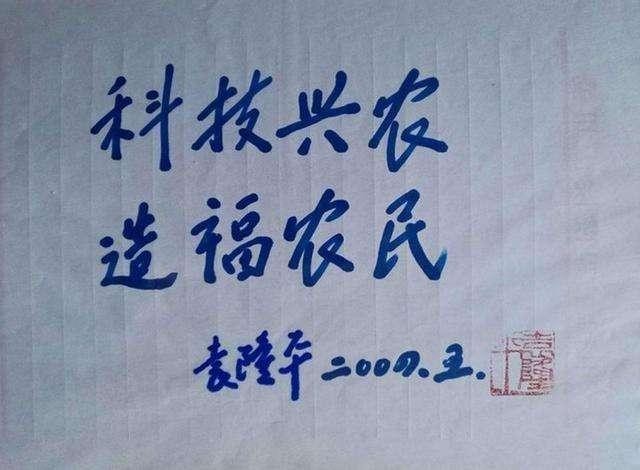 科技兴农
造福农民
袁隆平 二00四.五.